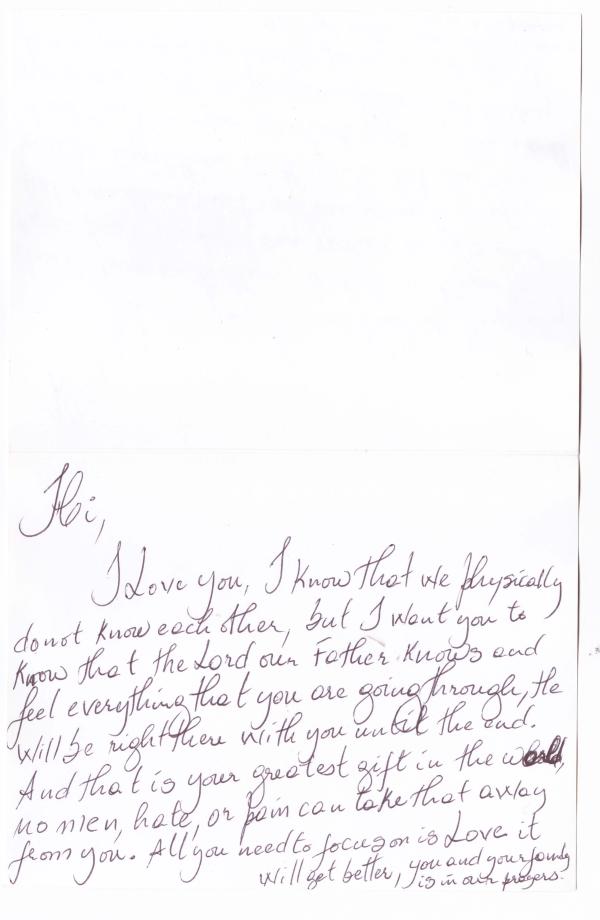 Hi,
I Love you, I know that we physically
do not know each other, but I want you to
know that the Lord our Father knows and
feel everything that you are going through, He
will be right there with you until the end.
And that is your greatest gift in the world,
no men, hate, or pain can take that away
from you. All you need to focus on is Love it
will get better, you and your family
is in our prayers.